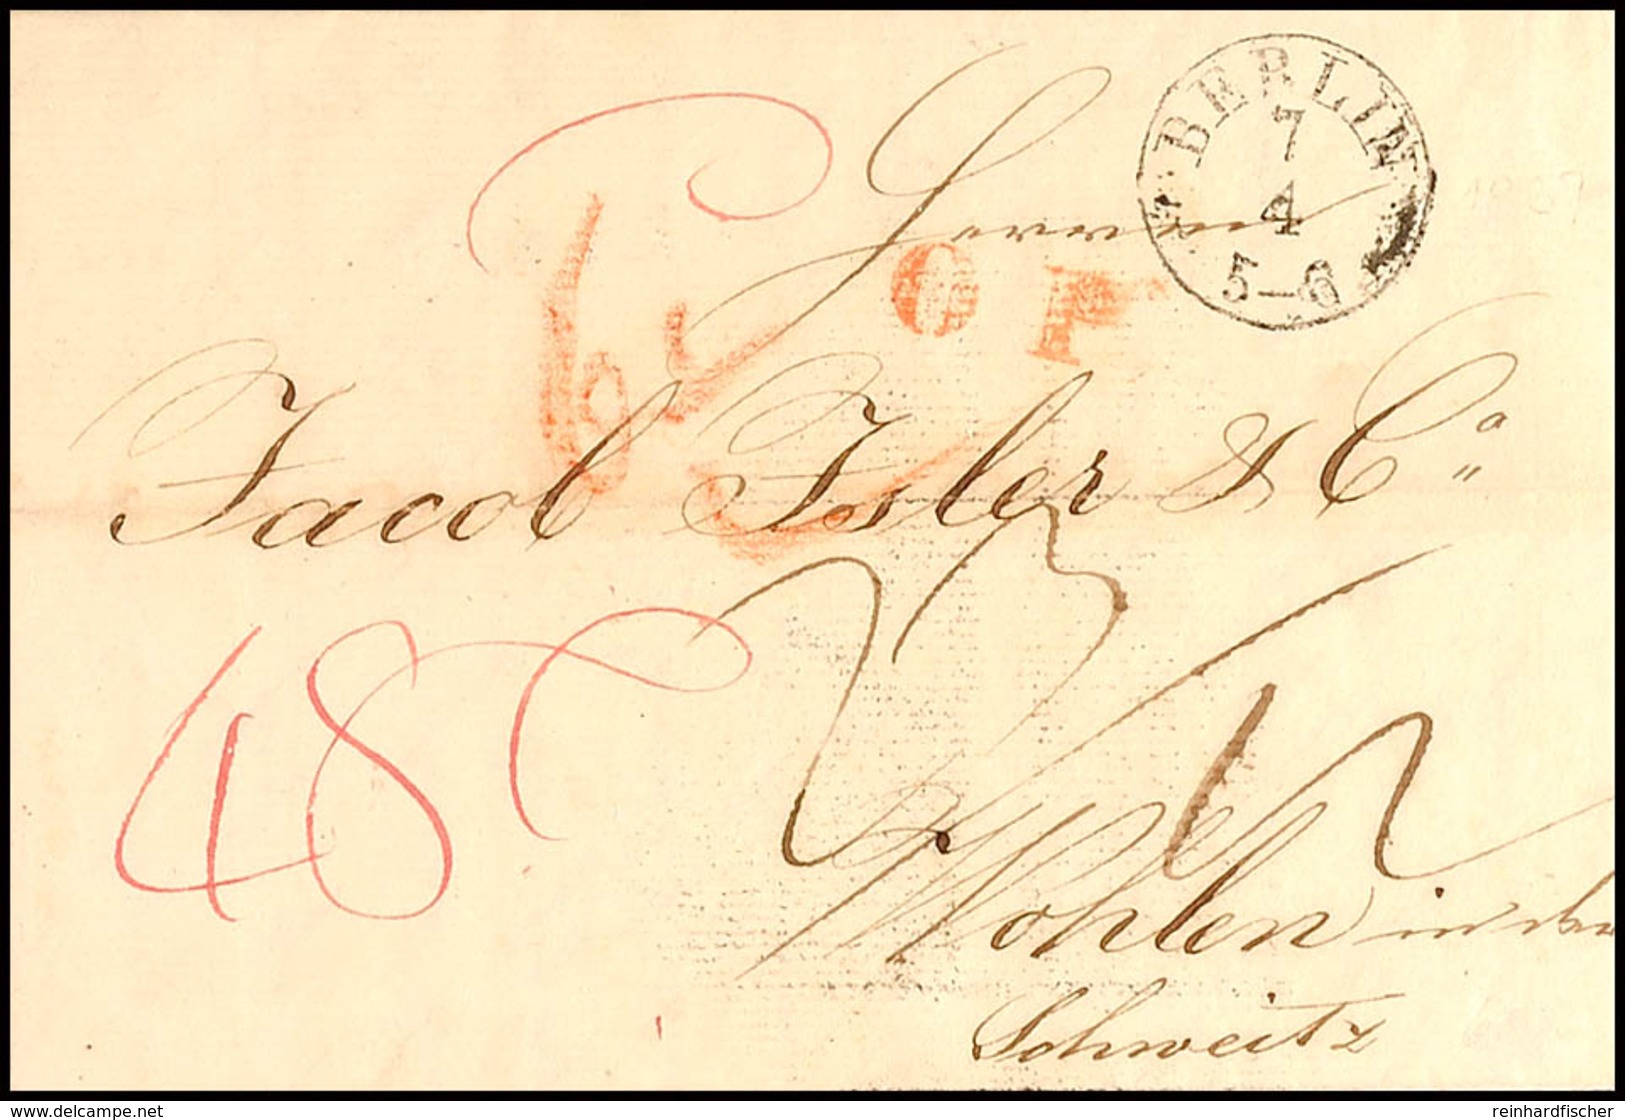 BERLIN
7
4
5–6
Herren
Jacob Isler & Co.
48
Wohlen in der
Schweitz
delcampe.net
reinhardfischer